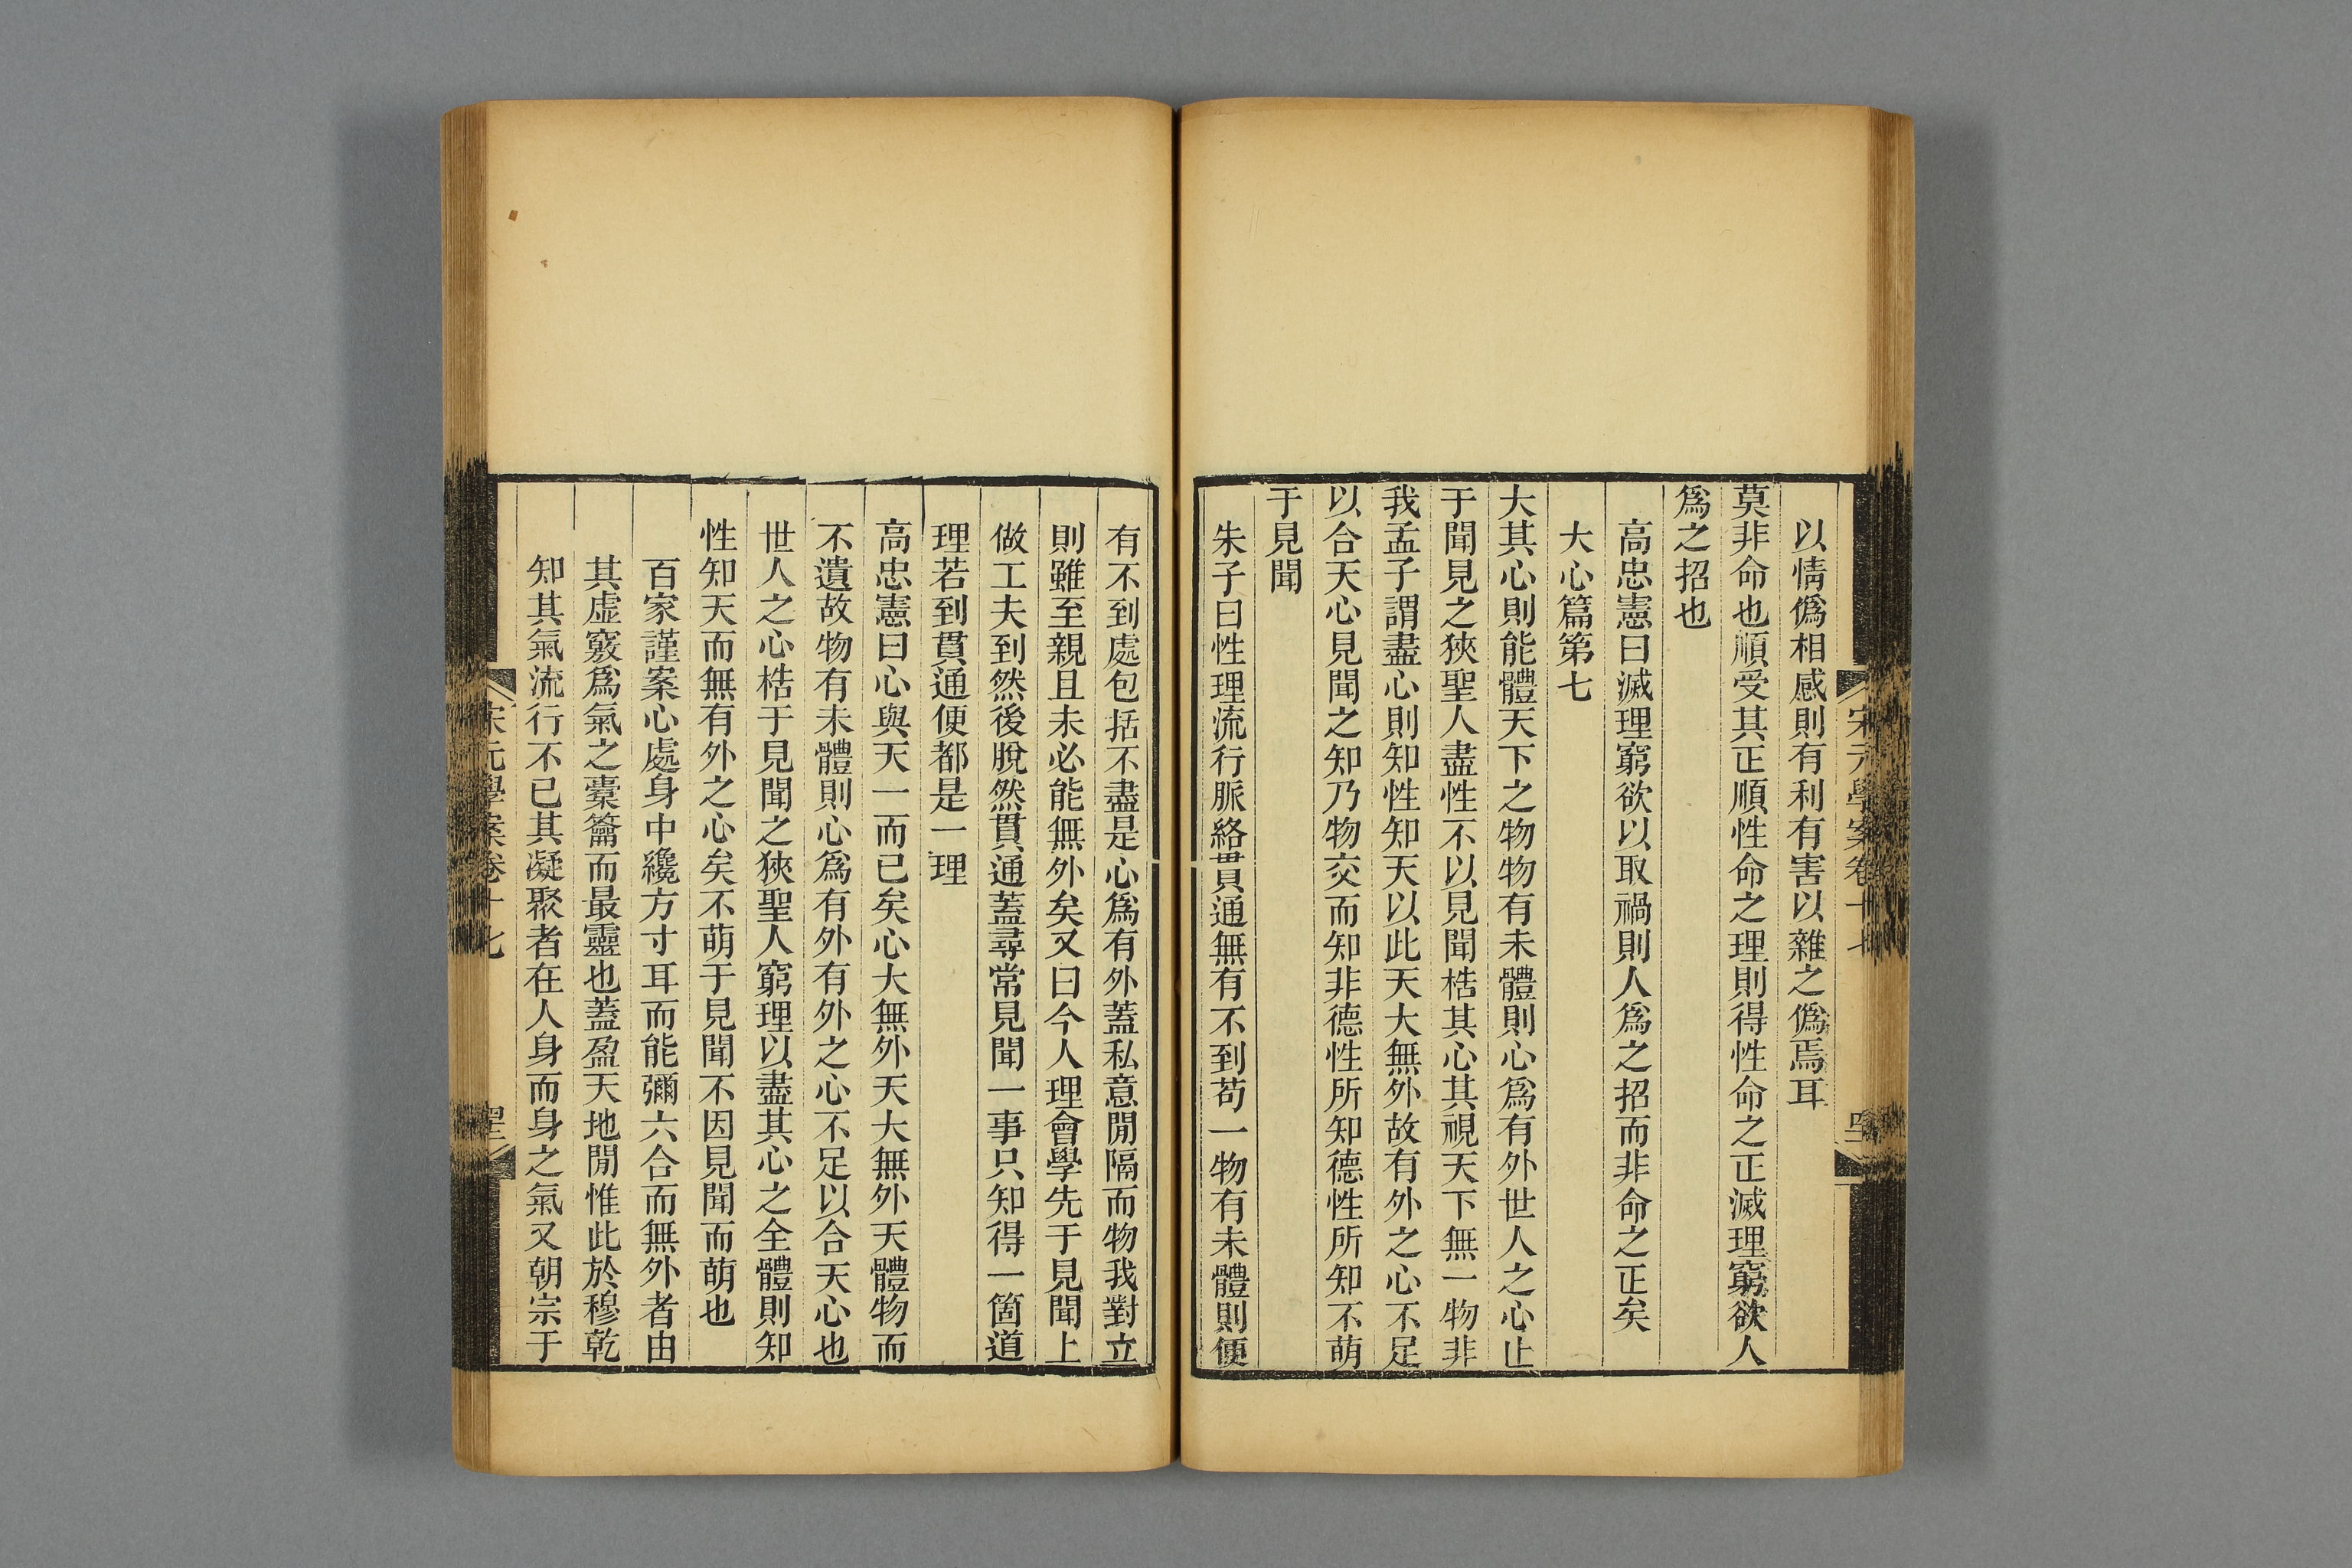 以情僞相感則有利有害以雜之僞焉耳
莫非命也順受其正順性命之理則得性命之正滅理窮欲人
爲之招也
高忠憲曰滅理窮欲以取禍則人爲之招而非命之正矣
大心篇第七
大其心則能體天下之物物有未體則心爲有外世人之心止
于聞見之狹聖人盡性不以見聞梏其心其視天下無一物非
我孟子謂盡心則知性知天以此天大無外故有外之心不足
以合天心見聞之知乃物交而知非德性所知德性所知不萌
于見聞
朱子曰性理流行脈絡貫通無有不到苟一物有未體則便
有不到處包括不盡是心爲有外蓋私意閒隔而物我對立
則雖至親且未必能無外矣又曰今人理會學先于見聞上
做工夫到然後脫然貫通蓋尋常見聞一事只知得一箇道
理若到貫通便都是一理
高忠憲曰心與天一而已矣心大無外天大無外天體物而
不遺故物有未體則心爲有外有外之心不足以合天心也
世人之心梏于見聞之狹聖人窮理以盡其心之全體則知
性知天而無有外之心矣不萌于見聞不因見聞而萌也
百家謹案心處身中纔方寸耳而能彌六合而無外者由
其虛竅爲氣之橐籥而最靈也蓋盈天地閒惟此於穆乾
知其氣流行不已其凝聚者在人身而身之氣又朝宗于
宋元學案卷十七